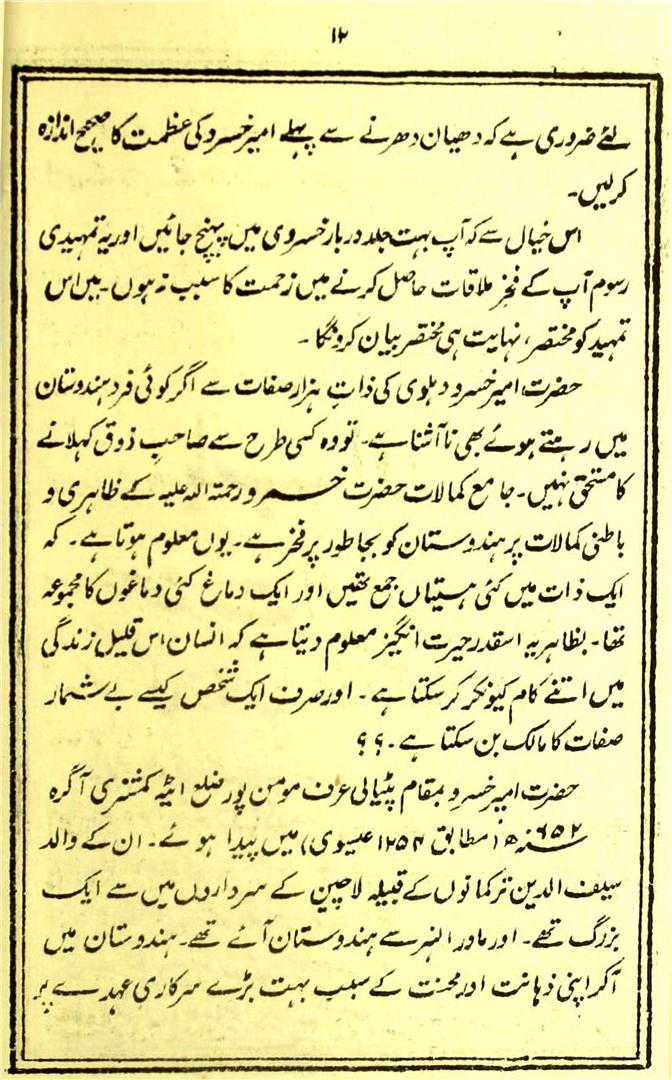 ۱۲
لئے ضروری ہے کہ دھیان دھرنے سے پہلے امیر خسرو کی عظمت کا صحیح اندازہ
کرلیں۔
اس خیال سے کہ آپ بہت جلد دربار خسروی میں پہنچ جائیں اور یہ تمہیدی
رسوم آپ کے فخرِ ملاقات حاصل کرنے میں زحمت کا سبب نہ ہوں۔ میں اس
تمہید کو مختصر، نہایت ہی مختصر بیان کرونگا۔
حضرت امیر خسرو دہلوی کی ذاتِ ہزار صفات سے اگر کوئی فرد ہندوستان
میں رہتے ہوئے بھی ناآشنا ہے۔ تو وہ کسی طرح سے صاحبِ ذوق کہلانے
کا مستحق نہیں۔ جامع کمالات حضرت خسرو رحمتہ اللہ علیہ کے ظاہری و
باطنی کمالات پر ہندوستان کو بجا طور پر فخر ہے۔ یوں معلوم ہوتا ہے۔ کہ
ایک ذات میں کئی ہستیاں جمع تھیں اور ایک دماغ کئی دماغوں کا مجموعہ
تھا۔ بظاہر یہ اسقدر حیرت انگیز معلوم دیتا ہے کہ انسان اس قلیل زندگی
میں اتنے کام کیونکر کرسکتا ہے۔ اور صرف ایک شخص کیسے بے شمار
صفات کا مالک بن سکتا ہے۔؟؟
حضرت امیر خسرو بمقام پٹیالی عرف مومن پور ضلع ایٹہ کمشنری آگرہ
سنہ ۶۵۲ھ (مطابق ۱۲۵۴ عیسوی) میں پیدا ہوئے۔ ان کے والد
سیف الدین ترکمانوں کے قبیلہ لاچین کے سرداروں میں سے ایک
بزرگ تھے۔ اور ماورالنہر سے ہندوستان آئے تھے۔ ہندوستان میں
آکر اپنی ذہانت اور محنت کے سبب بہت بڑے سرکاری عہدے پر